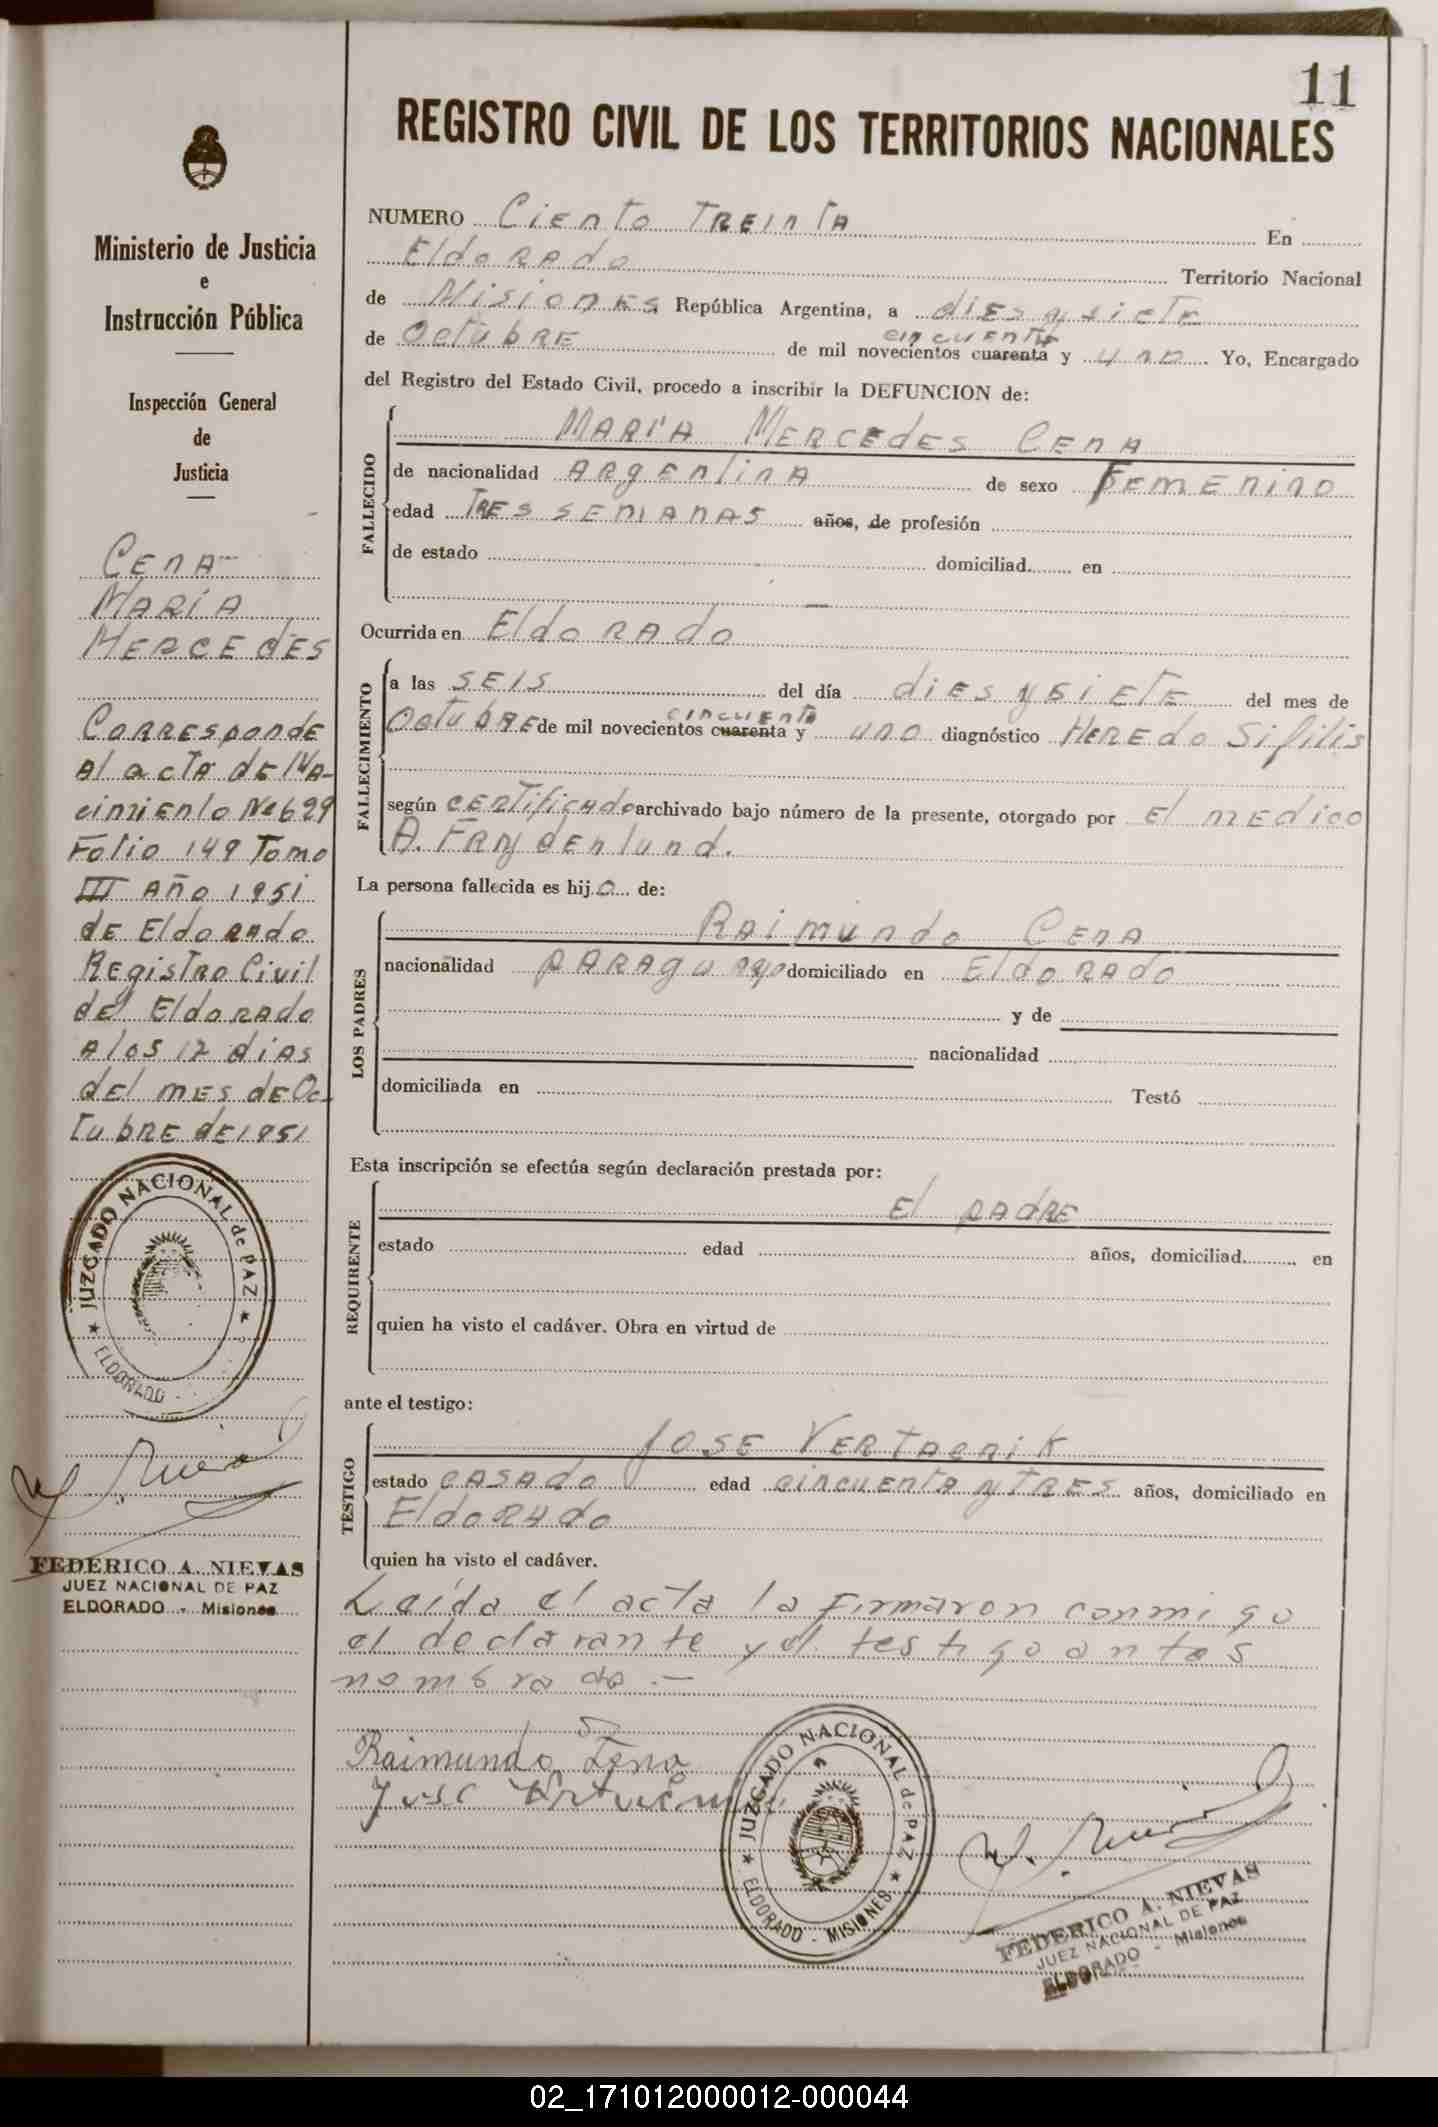 11
REGISTRO CIVIL DE LOS TERRITORIOS NACIONALES
Ministerio de Justicia
e
Instrucción Pública
Inspección General
de
Justicia
CENA
MARIA
MERCEDES
CORRESPONDE
Al acta de Na-
cimiento Nº 699
Folio 149 Tomo
III Año 1951
de Eldorado
Registro Civil
del Eldorado
A los 12 dias
del mes de Oc-
tubre de 1951
JUZGADO NACIONAL de PAZ
ELDORADO
FEDERICO A. NIEVAS
JUEZ NACIONAL DE PAZ
ELDORADO - Misiones
NUMERO Ciento Treinta En
Eldorado Territorio Nacional
de Misiones República Argentina, a dies y siete
cincuenta
de Octubre de mil novecientos cuarenta y uno Yo, Encargado
del Registro del Estado Civil, procedo a inscribir la DEFUNCION de:
FALLECIDO
Maria Mercedes Cena
de nacionalidad Argentina de sexo Femenino
edad Tres semanas años, de profesión
de estado domiciliad en
Ocurrida en Eldorado
FALLECIMIENTO
a las seis del día dies y siete del mes de
cincuenta
Octubre de mil novecientos cuarenta y uno diagnóstico Heredo Sifilis
según certificado archivado bajo número de la presente, otorgado por el medico
A. Frydenlund.
La persona fallecida es hijo de:
LOS PADRES
Raimundo Cena
nacionalidad paraguayo domiciliado en Eldorado
y de
nacionalidad
domiciliada en Testó
Esta inscripción se efectúa según declaración prestada por:
REQUIRENTE
El padre
estado edad años, domiciliad en
quien ha visto el cadáver. Obra en virtud de
ante el testigo:
TESTIGO
Jose Vertacnik
estado casado edad cincuenta y tres años, domiciliado en
Eldorado
quien ha visto el cadáver.
Leída el acta la firmaron conmigo
el declarante y el testigo antes
nombrado.-
Raimundo Cena
Jose
JUZGADO NACIONAL de PAZ
ELDORADO - MISIONES
FEDERICO A. NIEVAS
JUEZ NACIONAL DE PAZ
ELDORADO - Misiones
02_171012000012-000044